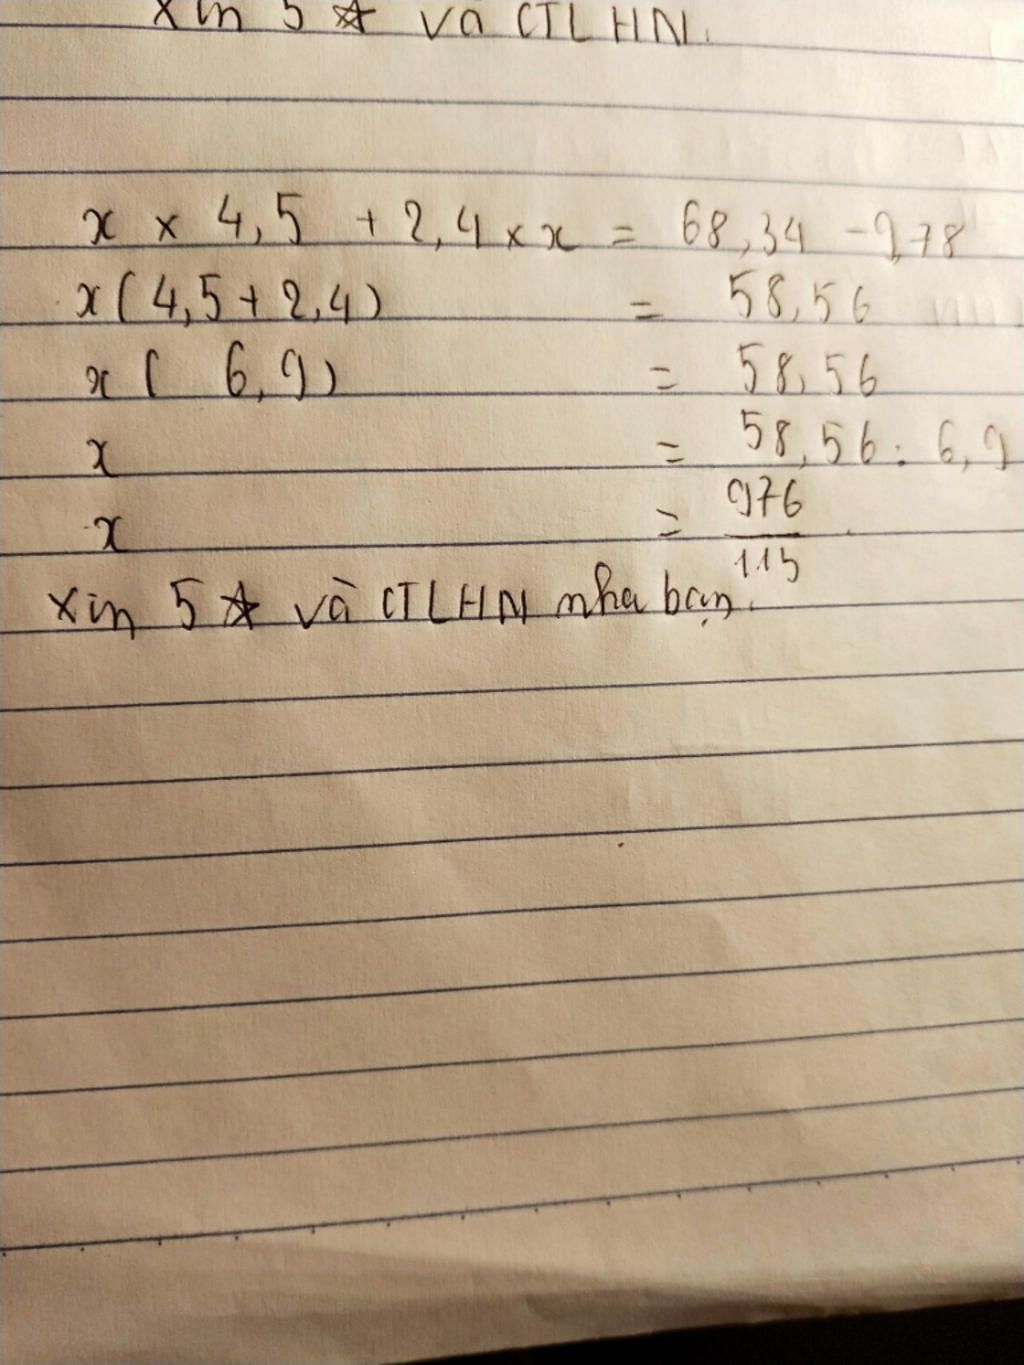 xin 5 ☆ và CTLHN.
x × 4,5 + 2,4 × x = 68,34 - 9,78
x ( 4,5 + 2,4 ) = 58,56
x ( 6,9 ) = 58,56
x = 58,56 : 6,9
x = 976/115
xin 5 ☆ và CTLHN nha bạn.